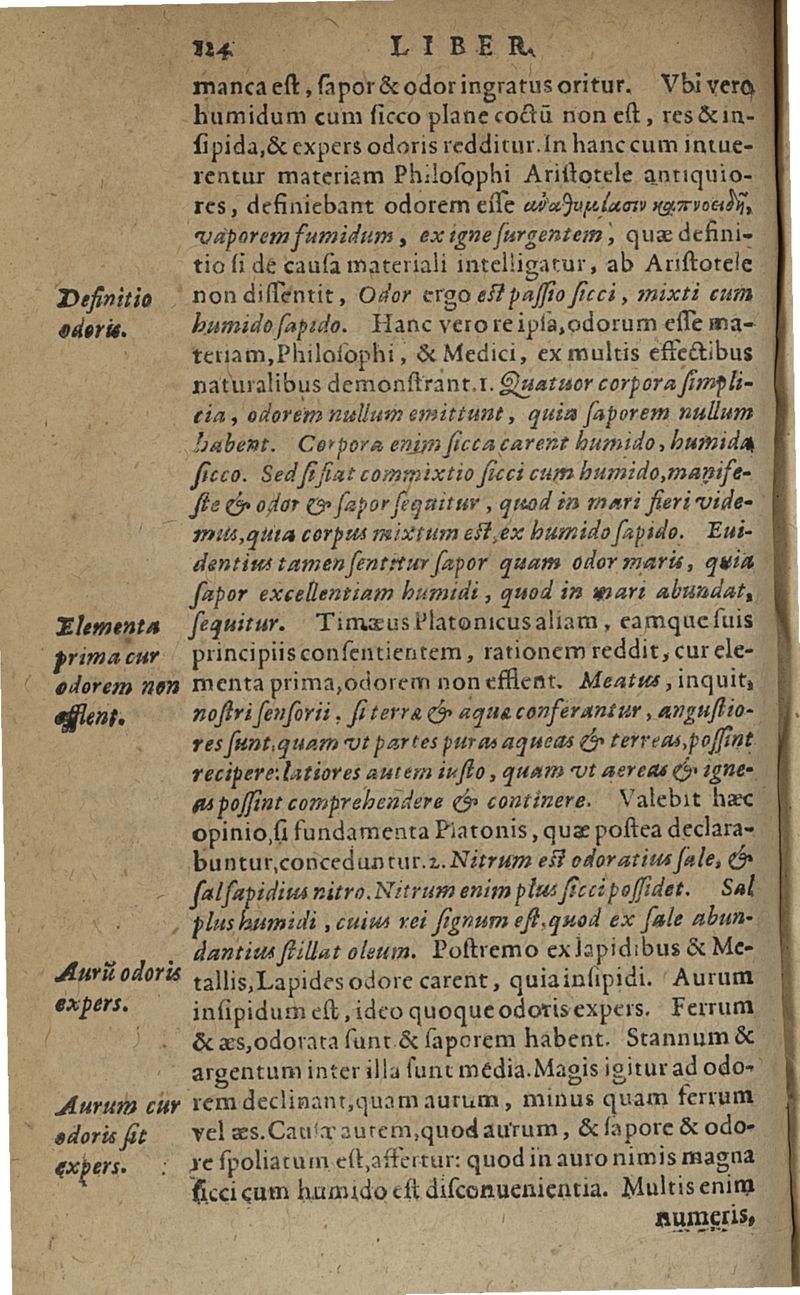 124 LIBER
manca est, sapor & odor ingratus oritur. Vbi vero
humidum cum sicco plane coctū non est, res & in-
sipida, & expers odoris redditur. In hanc cum intue-
rentur materiam Philosophi Aristotele antiquio-
res, definiebant odorem esse ἀναθυμίασιν καπνοειδῆ,
vaporem fumidum, ex igne surgentem, quæ defini-
tio si de causa materiali intelligatur, ab Aristotele
Definitio
odoris.
non dissentit, Odor ergo est passio sicci, mixti cum
humido sapido. Hanc vero re ipsa, odorum esse ma-
teriam, Philosophi, & Medici, ex multis effectibus
naturalibus demonstrant. 1. Quatuor corpora simpli-
cia, odorem nullum emittunt, quia saporem nullum
habent. Corpora enim sicca carent humido, humida
sicco. Sed si fiat commixtio sicci cum humido, manife-
ste & odor & sapor sequitur, quod in mari fieri vide-
mus, quia corpus mixtum est, ex humido sapido. Eui-
dentius tamen sentitur sapor quam odor maris, quia
sapor excellentiam humidi, quod in mari abundat,
Elementa
prima cur
odorem non
efflent.
sequitur. Timæus Platonicus aliam, eamque suis
principiis consentientem, rationem reddit, cur ele-
menta prima, odorem non efflent. Meatus, inquit,
nostri sensorii, si terræ & aquæ conferantur, angustio-
res sunt, quam vt partes puras aqueas & terreas, possint
recipere: latiores autem iusto, quam vt aereas & igne-
as possint comprehendere & continere. Valebit hæc
opinio, si fundamenta Platonis, quæ postea declara-
buntur, concedantur. 2. Nitrum est odoratius sale, &
sal sapidius nitro. Nitrum enim plus sicci possidet. Sal
plus humidi, cuius rei signum est, quod ex sale abun-
dantius stillat oleum. Postremo ex lapidibus & Me-
Aurū odoris
expers.
tallis, Lapides odore carent, quia insipidi. Aurum
insipidum est, ideo quoque odoris expers. Ferrum
& æs, odorata sunt & saporem habent. Stannum &
argentum inter illa sunt média. Magis igitur ad odo-
Aurum cur
odoris sit
expers.
rem declinant, quam aurum, minus quam ferrum
vel æs. Causa autem, quod aurum, & sapore & odo-
re spoliatum est, affertur: quod in auro nimis magna
sicci cum humido est disconuenientia. Multis enim
numeris,